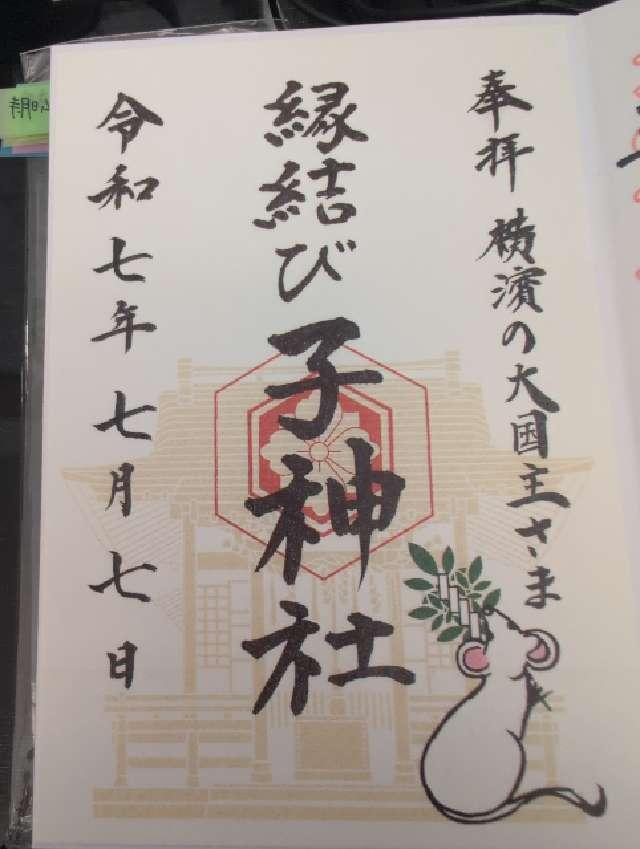 奉拝 横濱の大国主さま
縁結び子神社
令和七年七月七日